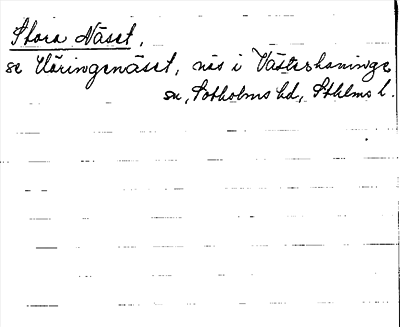 Stora Näset,
se Väringenäset, näs i Västerhaninge
sn, Sotholms hd, Sthlms l.